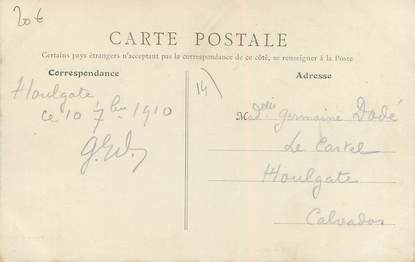 20€
CARTE POSTALE
Certains pays étrangers n'acceptant pas la correspondance de ce côté, se renseigner à la Poste
Correspondance
Houlgate
ce 10 7bre 1910
Adresse
14)
Mdelle Germaine Dodé
Le Castel
Houlgate
Calvados